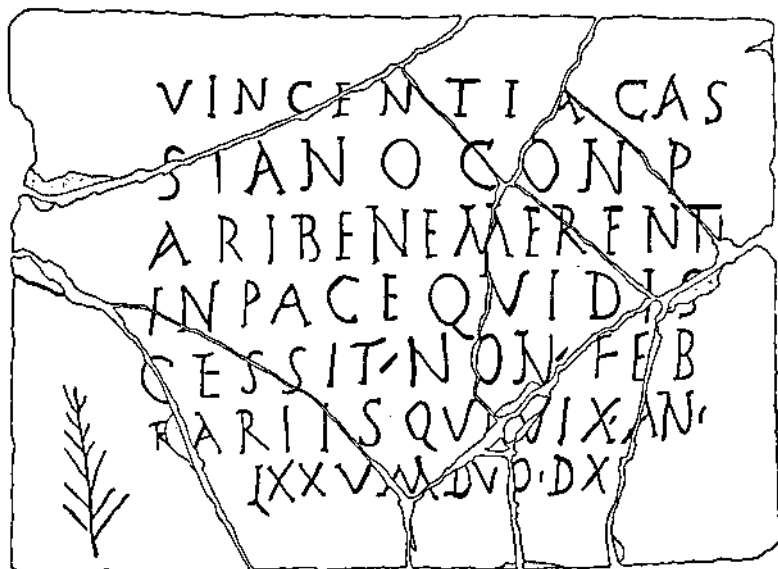 VINCENTIA CAS
SIANO CONP
ARIBENEMERENTI
INPACE QVIDIS
CESSIT·NON·FEB
RARIIS QVI VIX·AN·
LXXV M DVO·DX